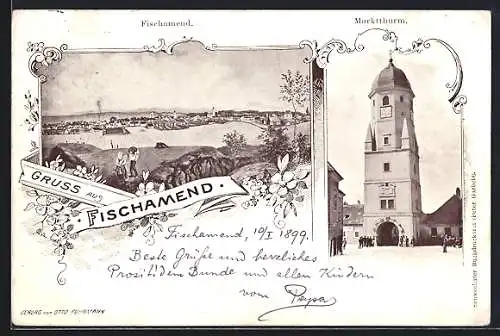 Fischamend.
Mocktthurm.
GRUSS AUS
FISCHAMEND.
Fischamend, 10/I 1899.
Beste Grüße und herzliches
Prosit den Bunde und allen Kindern
vom Papa
VERLAG VON OTTO